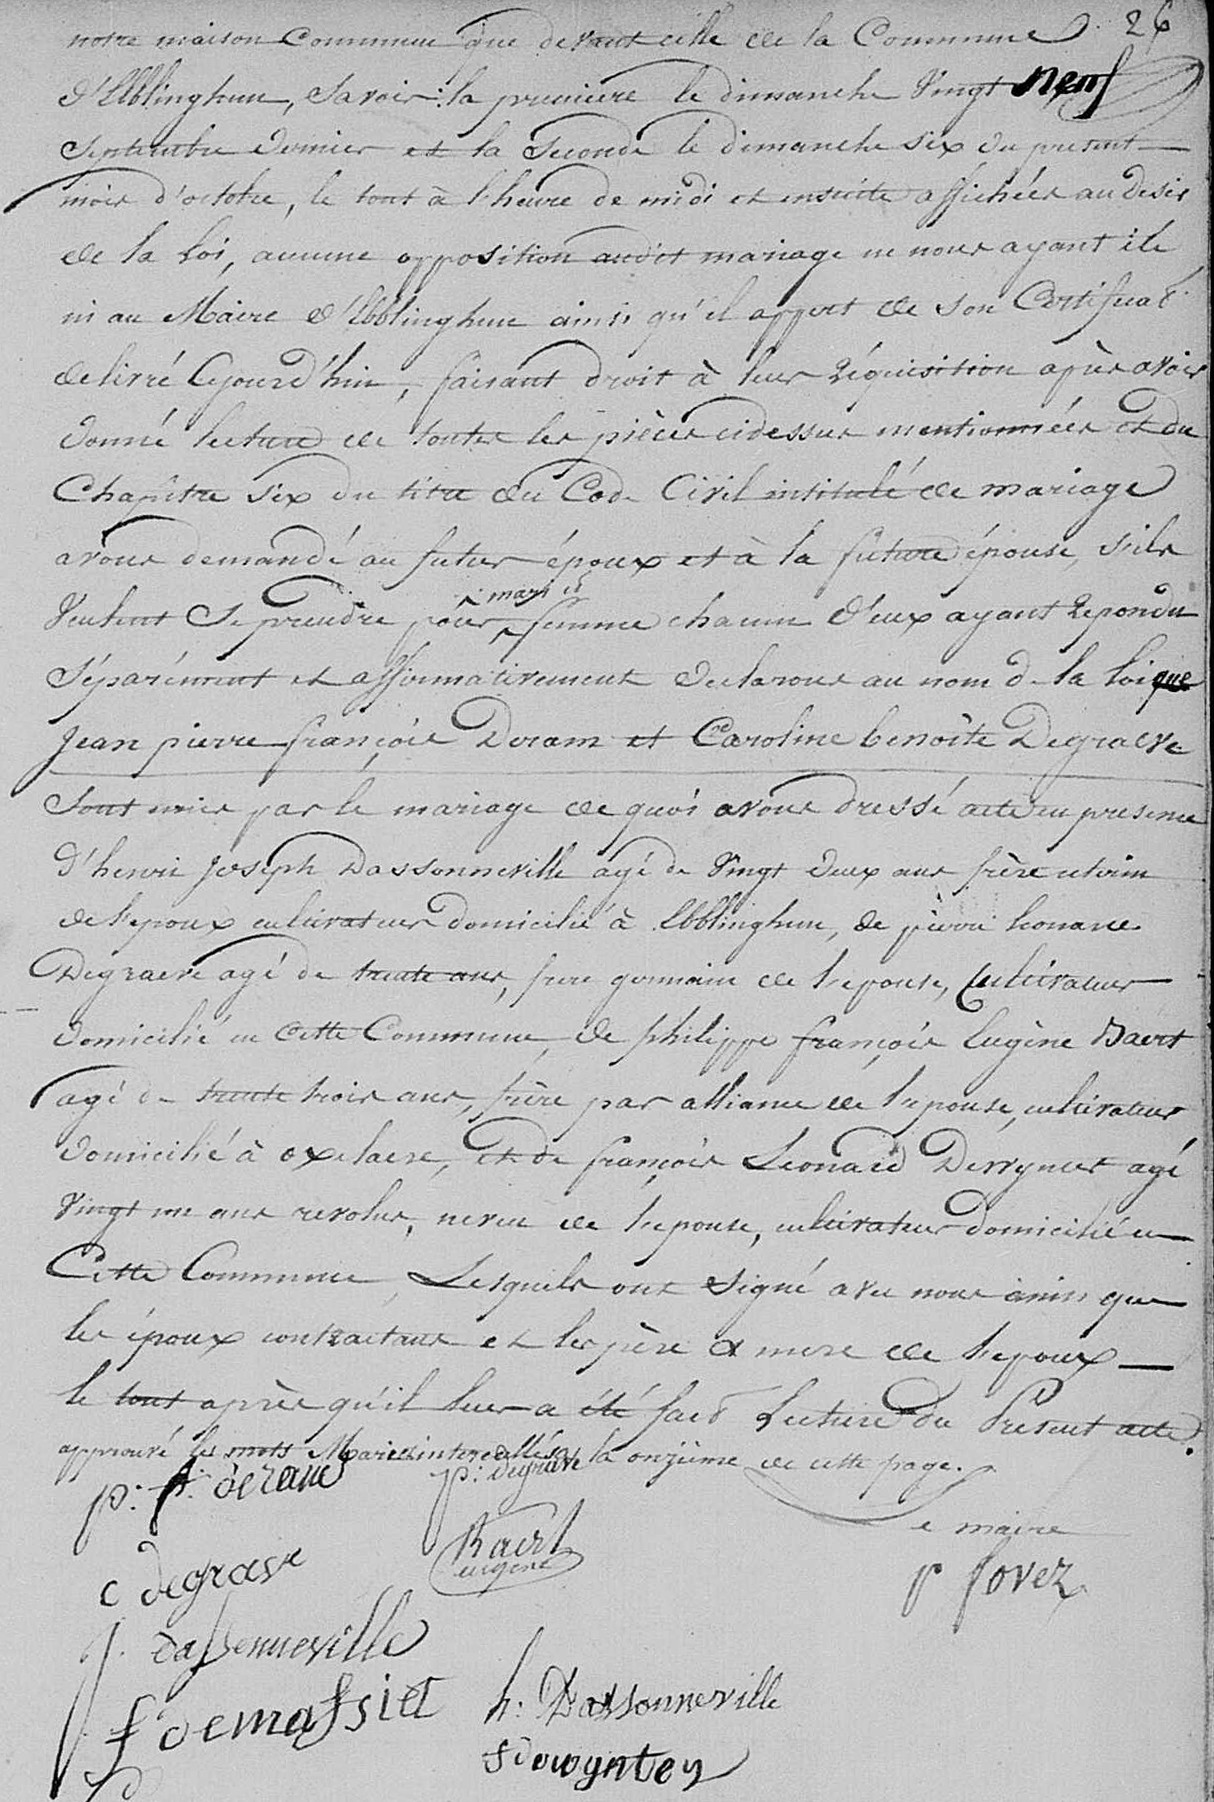 notre maison Commune que devant celle de la Commune 26
d'Ebblinghem, Savoir: la premiere le dimanche Vingt neuf
Septembre dernier et la Seconde le dimanche six du present
mois d'octobre, le tout à l'heure de midi et ensuite affichées au desir
de la Loi, aucune opposition audit mariage ne nous ayant été
ni au Maire d'Ebblinghem ainsi qu'il appert de son Certificat
delivré Cejourd'hui, faisant droit à leur Réquisition après avoir
donné lecture de toutes les pièces cidessus mentionnées et du
Chapitre six du titre du Code Civil intitulé de mariage
avons demandé au futur époux et à la future épouse, s'ils
Veulent Se prendre pour mari et femme chacun d'eux ayant repondu
Séparément et affirmativement declarons au nom de la loi que
Jean pierre françois Deram et Caroline benoîte Degraeve
Sont unis par le mariage de quoi avons dressé acte en presence
d'henri Joseph Dassonneville agé de Vingt deux ans frère uterin
de l'epoux cultivateur domicilié à Ebblinghem, de pierre Leonard
Degraeve agé de trente ans, frere germain de l'epouse, Cultivateur
domicilié en Cette Commune, de philippe françois Eugène Baert
agé de trente trois ans, frère par alliance de l'epouse, cultivateur
domicilié à oxelaere, et de françois Leonard Dewynter agé
Vingt un ans revolus, neveu de l'epouse, cultivateur domicilié en
Cette Commune, Lesquels ont Signé avec nous ainsi que
les époux contractans et les père & mere de l'epoux
le tout après qu'il leur a été fait Lecture du Present acte.
approuvé les mots Mari et intercallés à la onzième de cette page.
p: f. deram p: degraeve
Le maire
C degraeve Baert eugene
p fovez
J. dassenneville
f demassiet h: Dassonneville
f dewynter